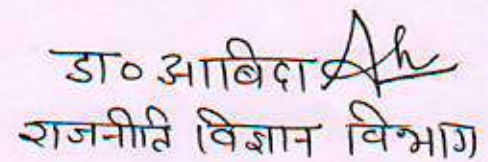 डा० आबिदा
राजनीति विज्ञान विभाग